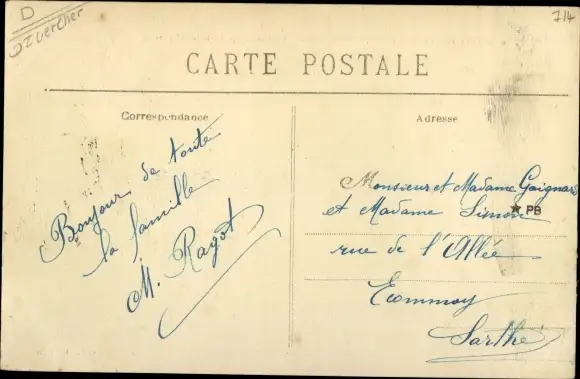 D
714
CARTE POSTALE
Correspondance
Adresse
Bonjour de toute
la famille
M. Ragot
Monsieur et Madame Goignard
et Madame Simon
PB
rue de l'Allée
Ecommoy
Sarthe